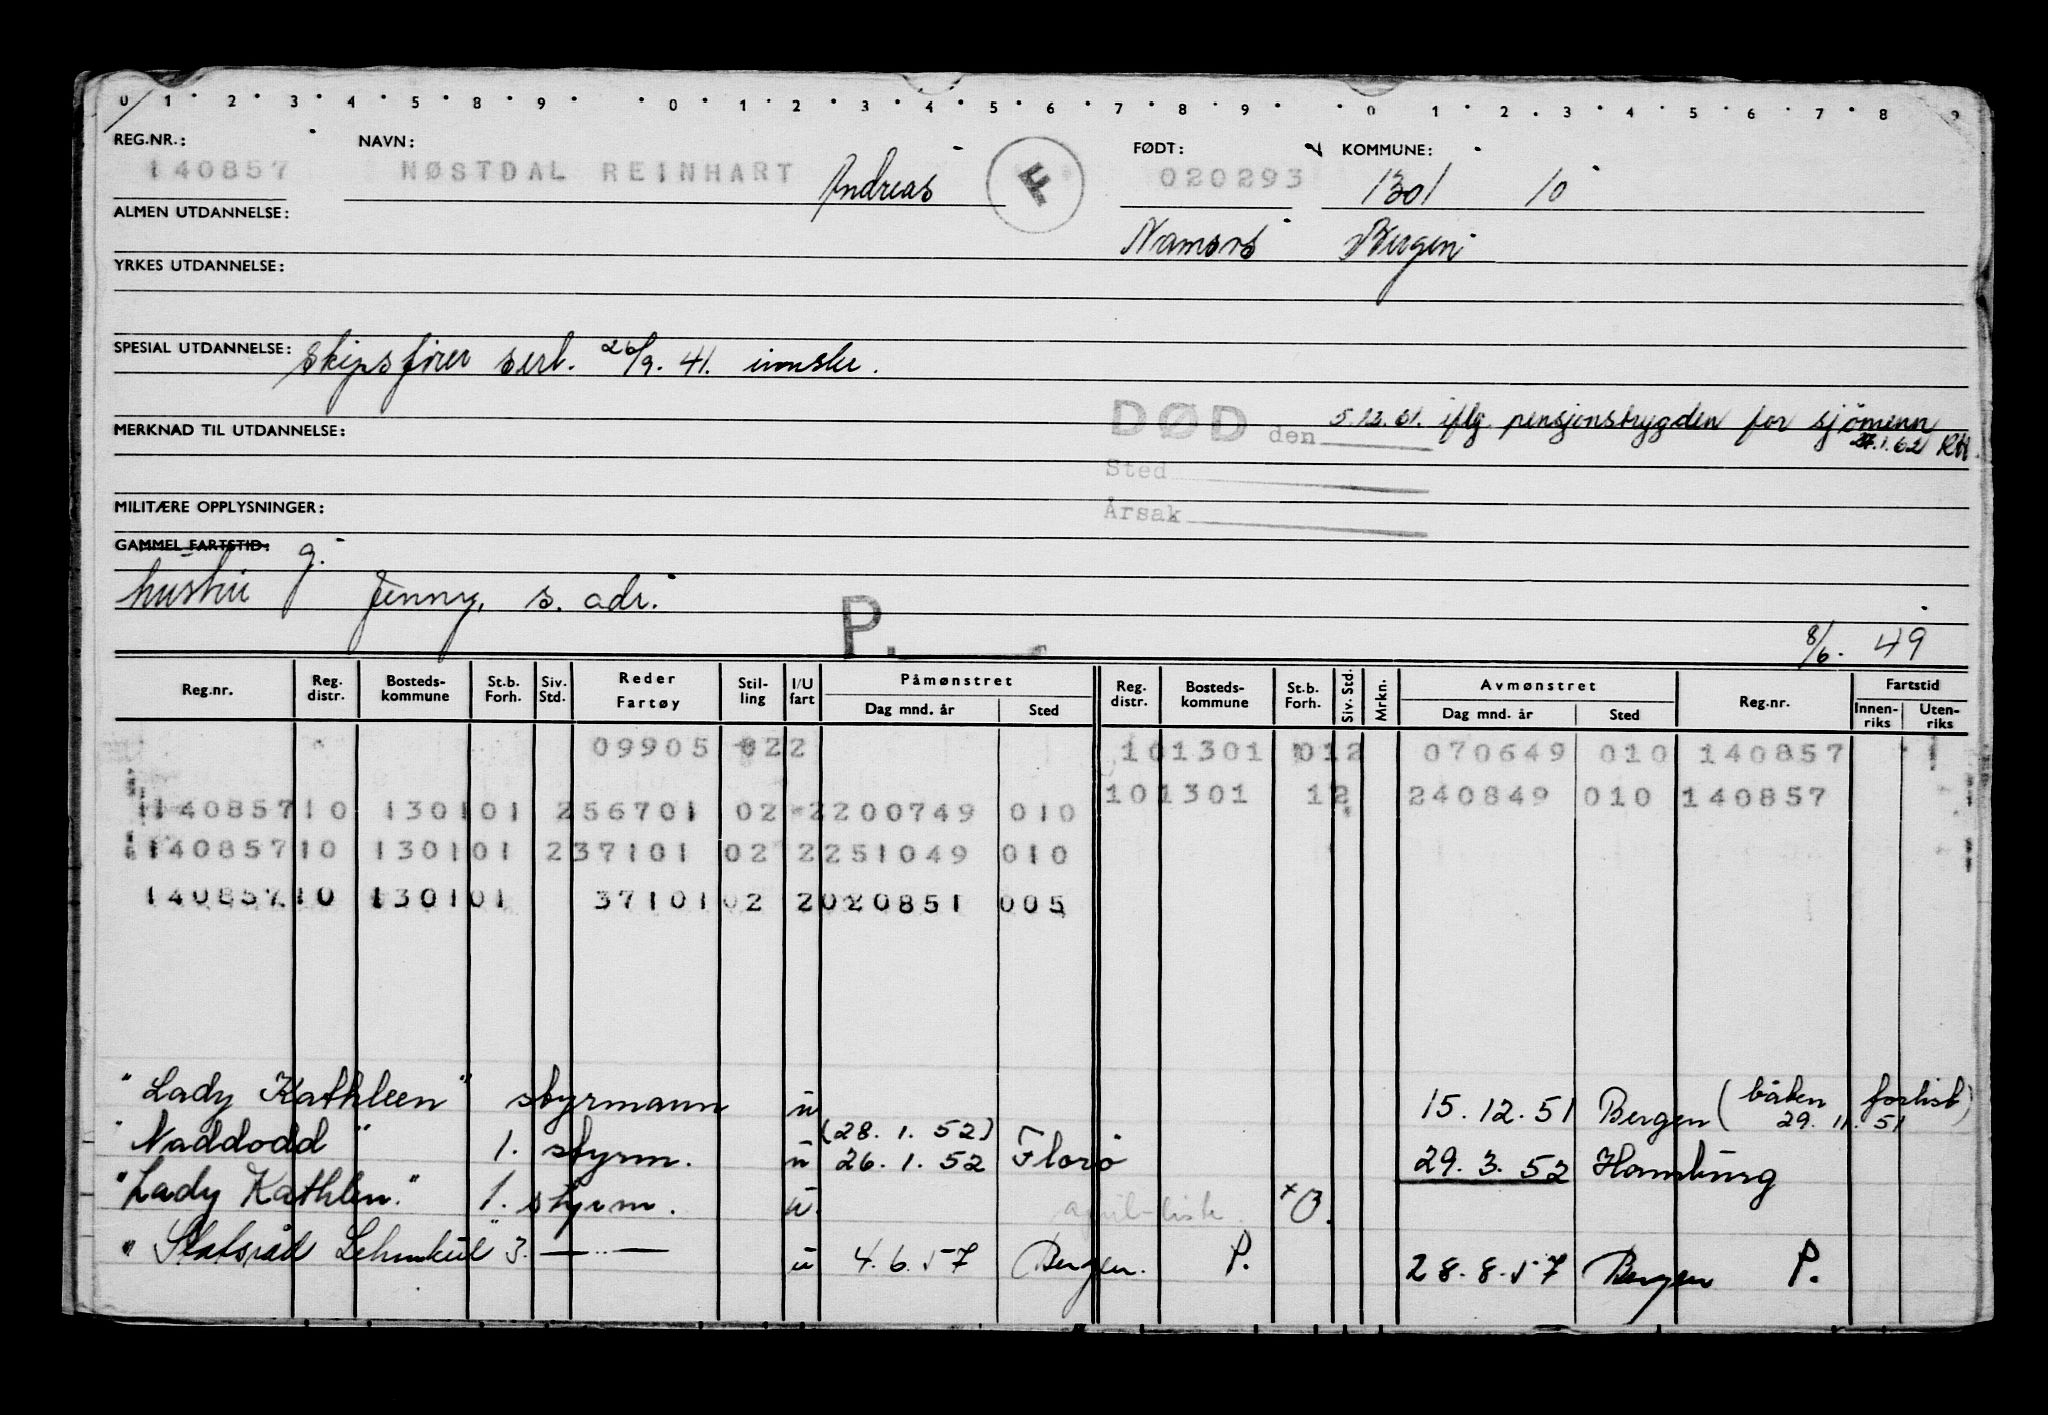 0 1 2 3 4 5 8 9 0 1 2 3 4 5 6 7 8 9 0 1 2 3 4 5 6 7 8 9
REG.NR.: NAVN: FØDT: KOMMUNE:
140857 NØSTDAL REINHART Andreas F 020293 1301 10
ALMEN UTDANNELSE: Namsos Bergen
YRKES UTDANNELSE:
SPESIAL UTDANNELSE: Skipsfører sert. 26/9. 41.
DØD den 5.12.61. iflg. pensjonstrygden for sjömenn
MERKNAD TIL UTDANNELSE: 27.1.62 RH.
Sted
MILITÆRE OPPLYSNINGER: Årsak
GAMMEL FARTSTID: g.
hustru Jenny, s. adr.
P. 8/6. 49
Reg.nr. Reg. distr. Bosteds-kommune St.b. Forh. Siv. Std. Reder Fartøy Stil-ling I/U fart Påmønstret Dag mnd. år Sted Reg. distr. Bosteds-kommune St.b. Forh. Siv. Std. Mrkn. Avmønstret Dag mnd. år Sted Reg.nr. Fartstid Innen-riks Uten-riks
09905 022 101301 012 070649 010 140857
101301 12 240849 010 140857
140857 10 130101 256701 02 2200749 010
140857 10 130101 237101 02 2251049 010
140857 10 130101 37101 02 2020851 005
"Lady Kathleen" styrmann u 15.12.51 Bergen (båten forlist 29.11.51)
(28.1.52)
"Naddodd" 1. styrm. u 26.1.52 Florö 29.3.52 Hamburg
"Lady Kathlen." 1. styrm. u. april-liste xB.
"Statsråd Lehmkul" 3. —"— u 4.6.57 Bergen. P. 28.8.57 Bergen P.